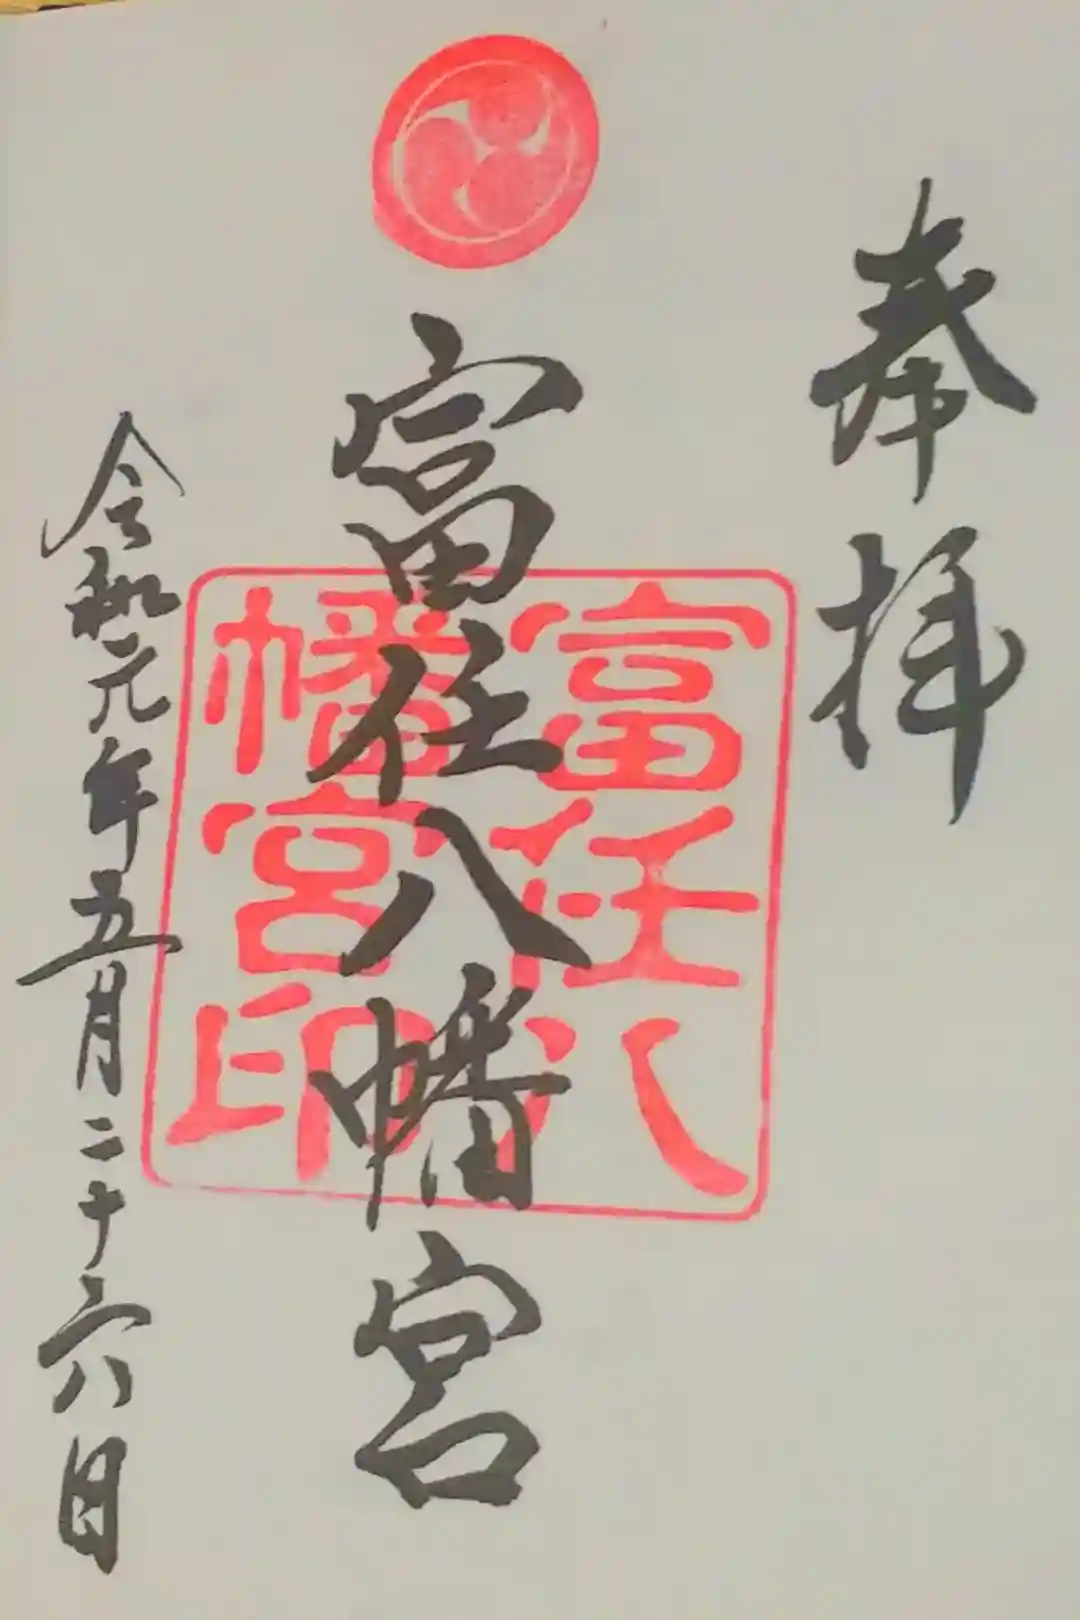 奉拝
富任八幡宮
令和元年五月二十六日
富任八
幡宮印